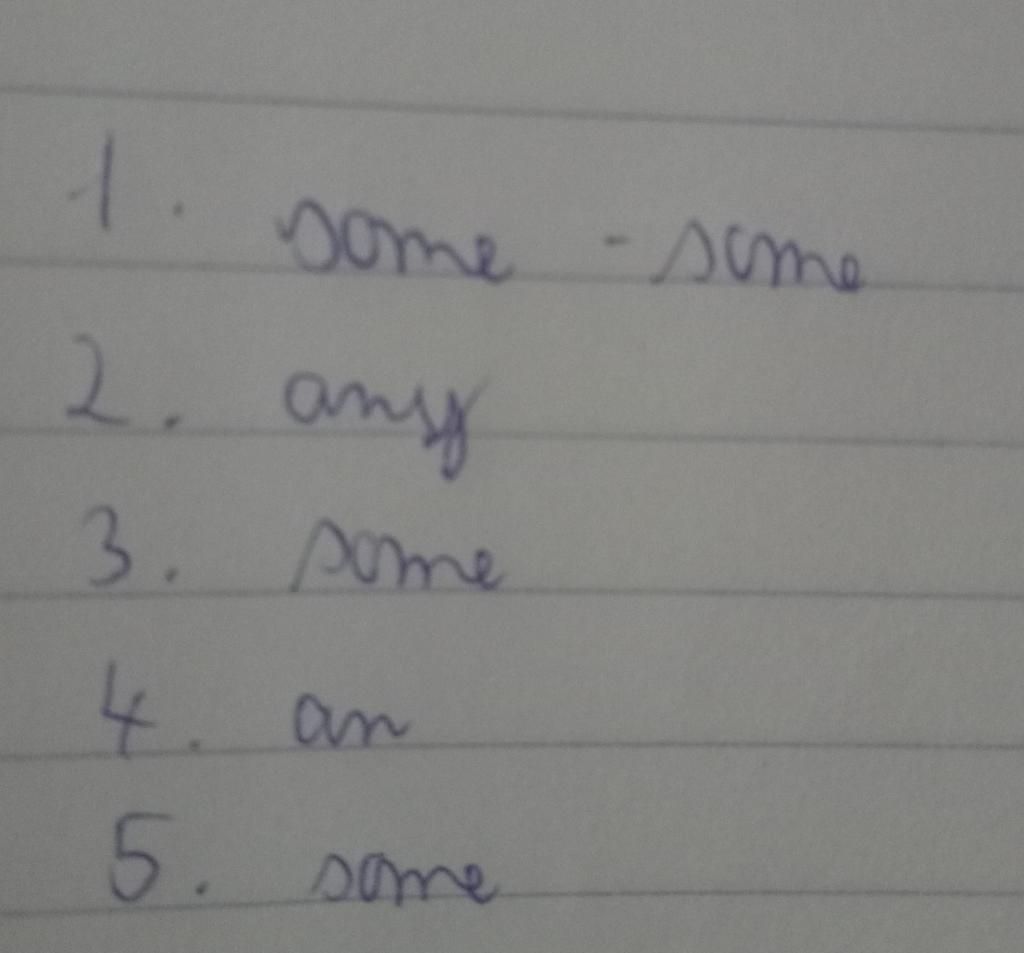 1. some - some
2. any
3. some
4. an
5. some